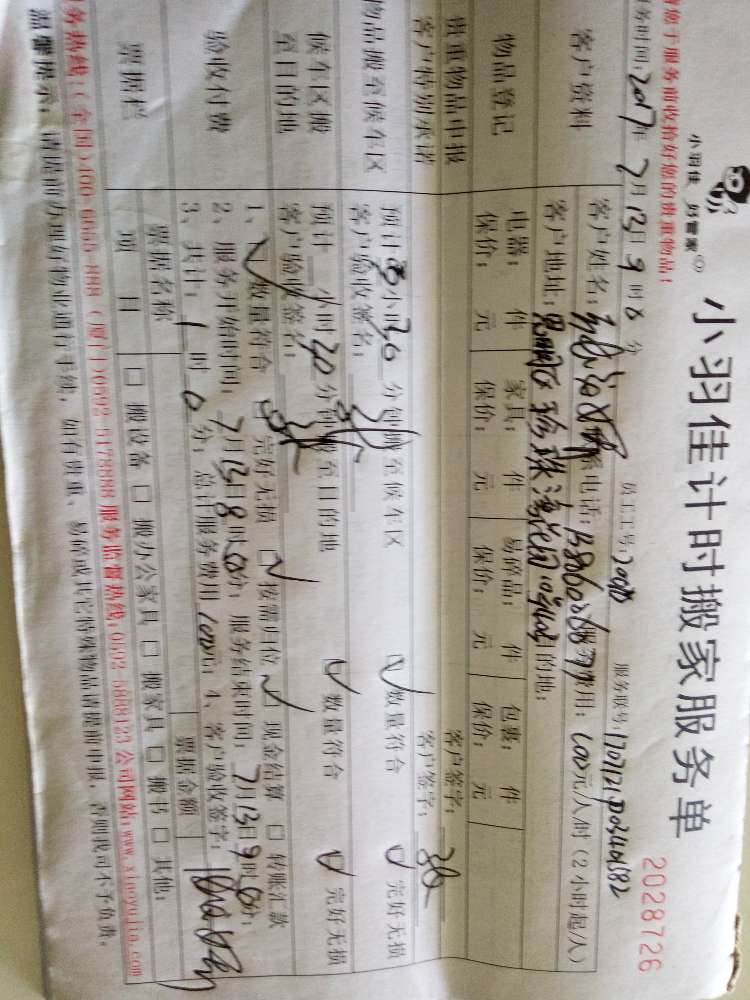 小羽佳 好管家
小羽佳计时搬家服务单
2028726
请您于服务前收拾好您的贵重物品！
服务时间：2017年7月13日9时8分 员工工号： 服务账号：
客户资料
客户姓名： 联系电话： 服务费用：100元/人时（2小时起/人）
客户地址：思明区珍珠湾花园 目的地：
物品登记
电器： 件 家具： 件 易碎品： 件 包裹： 件
保价： 元 保价： 元 保价： 元 保价： 元
贵重物品申报 客户签字：
客户特别承诺 客户签字：
物品搬至候车区
预计 小时30分钟搬至候车区 数量符合 完好无损
客户验收签名：
候车区搬至目的地
预计 小时20分钟搬至目的地 数量符合 完好无损
客户验收签名：
验收付费
1、数量符合 完好无损 □按需归位 □现金结算 □转账汇款
2、服务开始时间：7月13日8时0分；服务结束时间：7月13日9时0分；
3、共计：1时0分；总计服务费用100元；4、客户验收签字：
票据栏
票据名称 票据金额
项目 □搬设备 □搬办公家具 □搬家具 □搬书 □其他：
服务热线：（全国）400-6565-888 （厦门）0592-5178888 服务监督热线：0592-5888123 公司网站：www.xiaoyujia.com
温馨提示：请提前办理好物业通行手续，如有贵重、易碎或其它特殊物品请提前申报，否则我司不予负责。